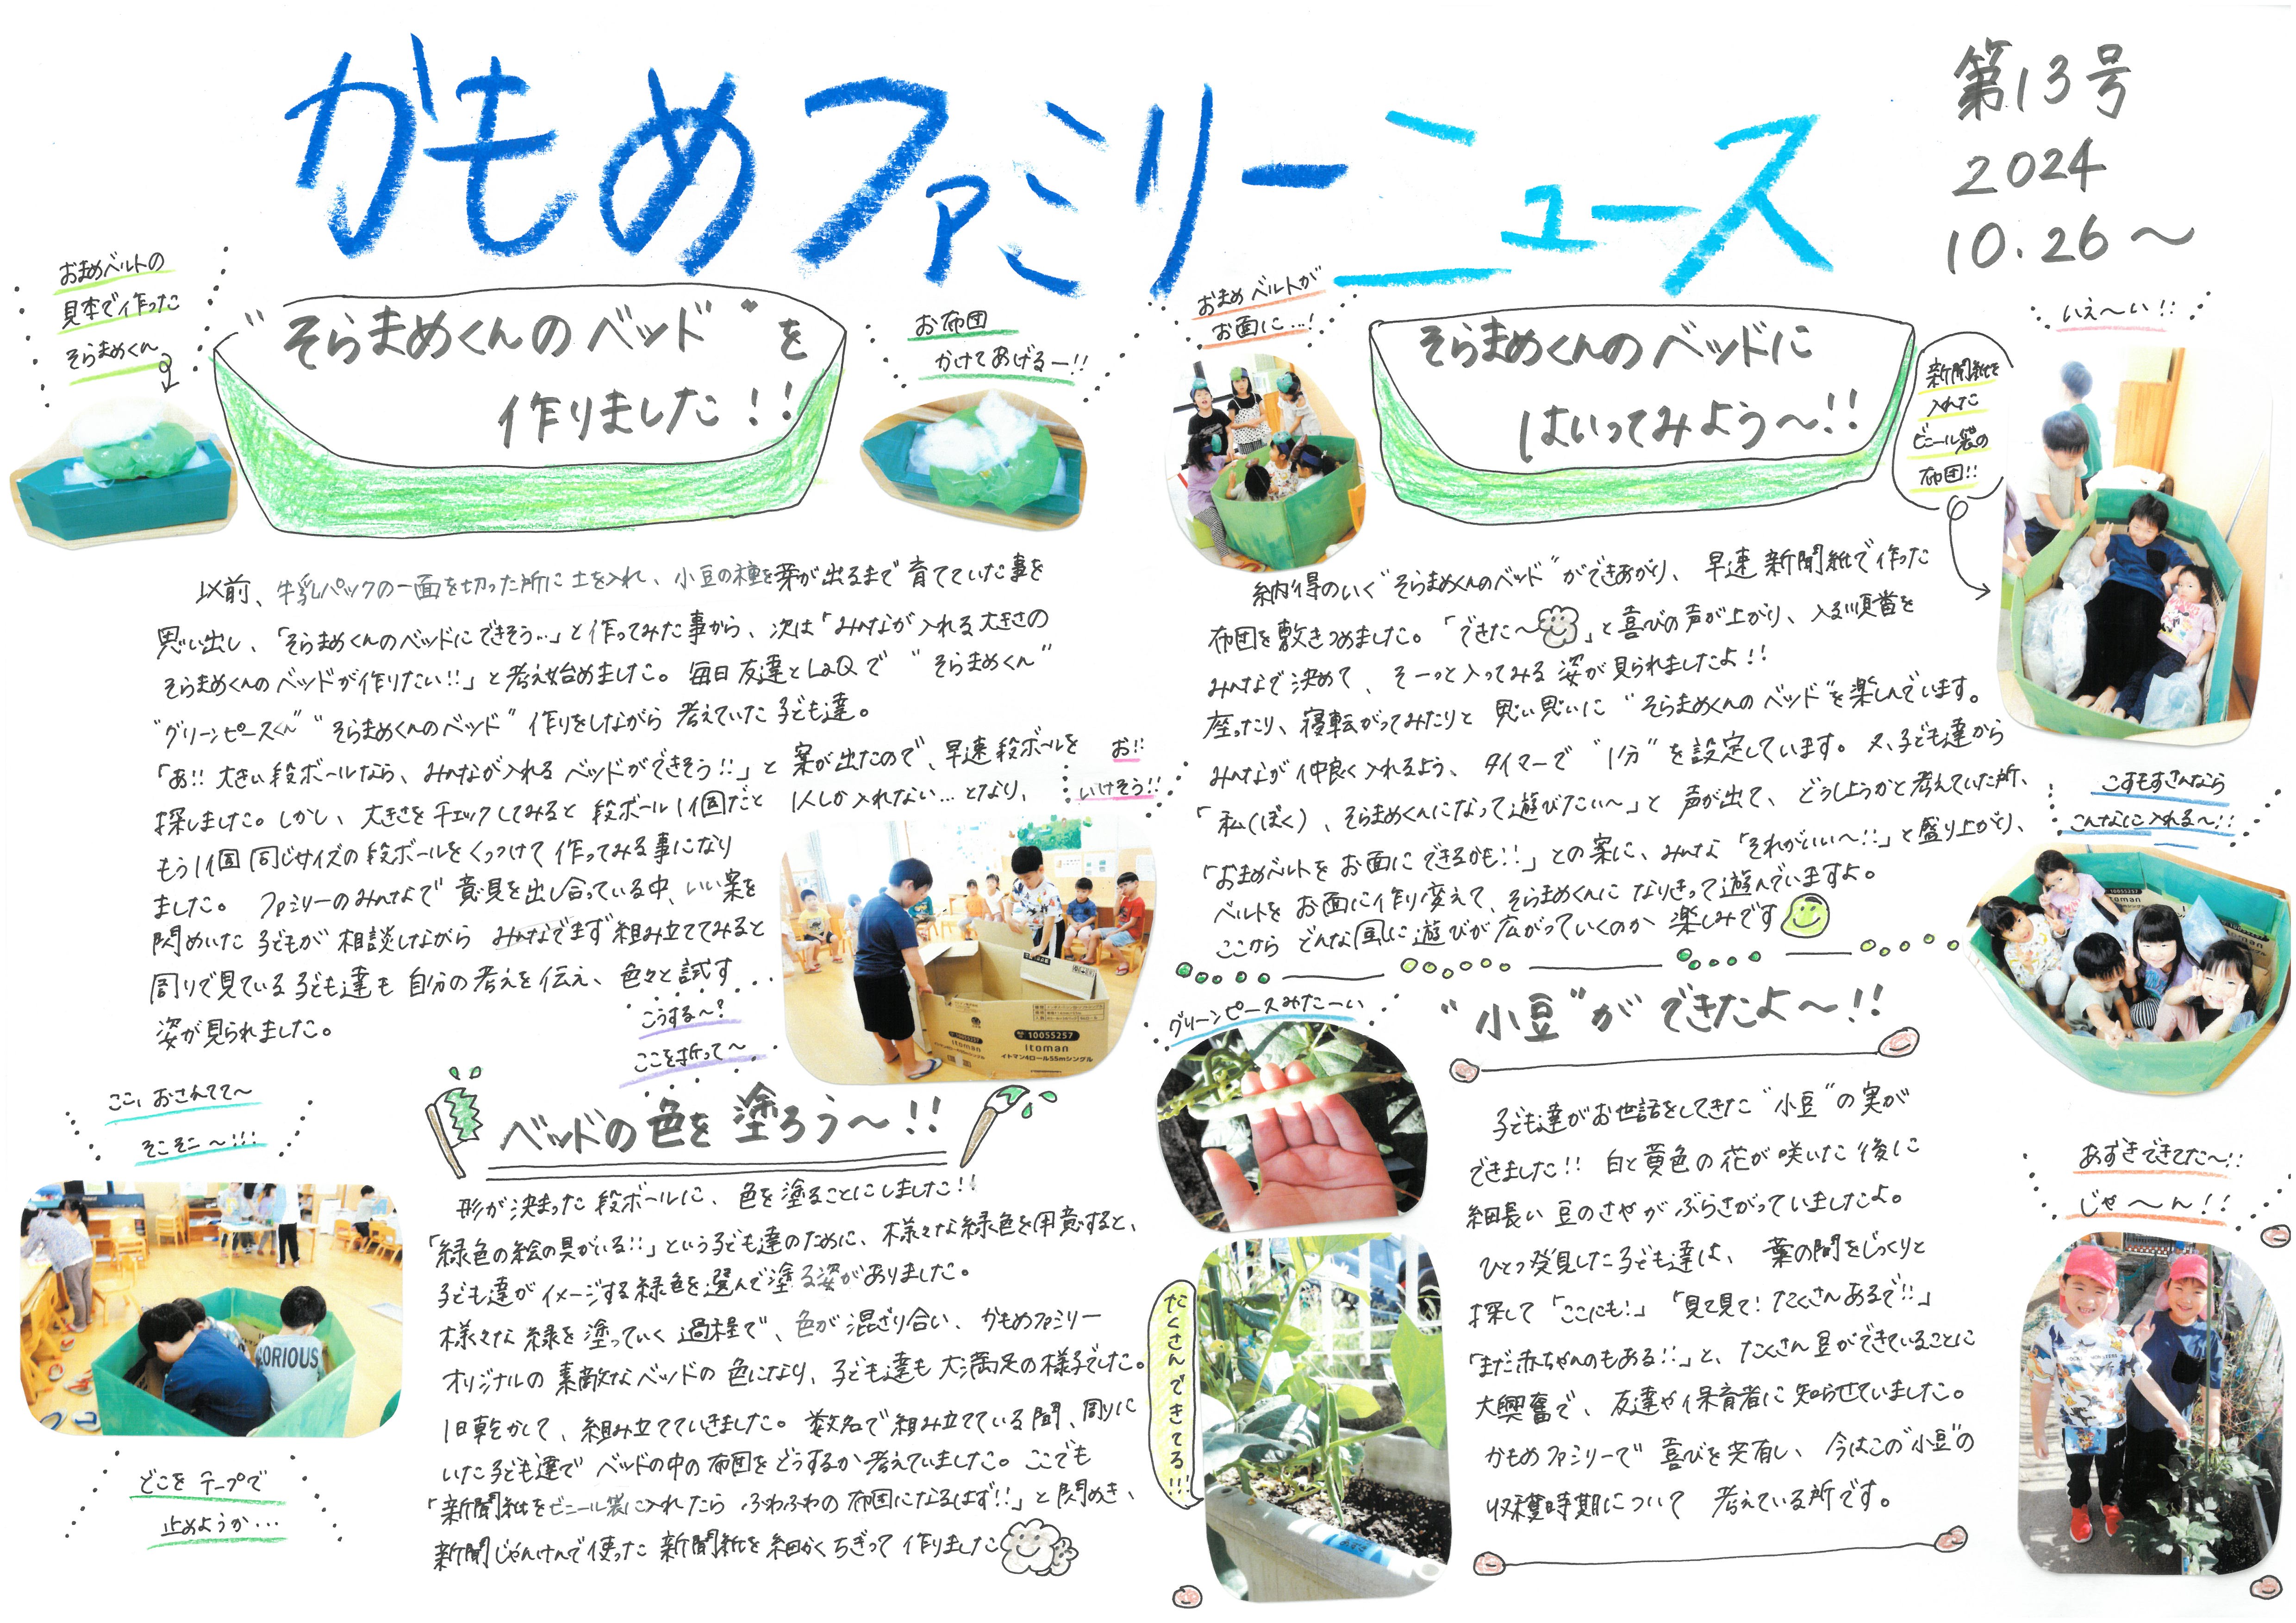 かもめファミリーニュース
第13号
2024
10.26～
おまめベルトの
見本で作った
そらまめくん
"そらまめくんのベッド"を
作りました!!
お布団
かけてあげるー!!
以前、牛乳パックの一面を切った所に土を入れ、小豆の種を芽が出るまで育てていた事を
思い出し、「そらまめくんのベッドにできそう…」と作ってみた事から、次は「みんなが入れる大きさの
そらまめくんのベッドが作りたい!!」と考え始めました。毎日友達とLaQで "そらまめくん"
"グリーンピースくん" "そらまめくんのベッド" 作りをしながら考えていた子ども達。
「あ!! 大きい段ボールなら、みんなが入れるベッドができそう!!」と案が出たので、早速段ボールを
探しました。しかし、大きさをチェックしてみると段ボール1個だと1人しか入れない…となり、
もう1個同じサイズの段ボールをくっつけて作ってみる事になり
ました。ファミリーのみんなで意見を出し合っている中、いい案を
閃めいた子どもが相談しながらみんなでまず組み立ててみると
周りで見ている子ども達も自分の考えを伝え、色々と試す
姿が見られました。
お!!
いけそう!!
こうする～?
ここを折って～
itoman
10055257
itoman
イトマン4ロール55mシングル
ベッドの色を塗ろう～!!
ここ、おさえてて～
そこそこ～!!!
ORIOUS
どこをテープで
止めようか…
形が決まった段ボールに、色を塗ることにしました!!
「緑色の絵の具がいる!!」という子ども達のために、様々な緑色を用意すると、
子ども達がイメージする緑色を選んで塗る姿がありました。
様々な緑を塗っていく過程で、色が混ざり合い、かもめファミリー
オリジナルの素敵なベッドの色になり、子ども達も大満足の様子でした。
1日乾かして、組み立てていきました。数名で組み立てている間、周りに
いた子ども達でベッドの中の布団をどうするか考えていました。ここでも
「新聞紙をビニール袋に入れたらふわふわの布団になるはず!!」と閃めき、
新聞じゃんけんで使った新聞紙を細かくちぎって作りました
おまめベルトが
お面に…!
そらまめくんのベッドに
はいってみよう～!!
新聞紙を
入れた
ビニール袋の
布団!!
いえ～い!!
納得のいく"そらまめくんのベッド"ができあがり、早速新聞紙で作った
布団を敷きつめました。「できた～」と喜びの声が上がり、入る順番を
みんなで決めて、そーっと入ってみる姿が見られましたよ!!
座ったり、寝転がってみたりと思い思いに"そらまめくんのベッド"を楽しんでいます。
みんなが仲良く入れるよう、タイマーで"1分"を設定しています。又、子ども達から
「私(ぼく)、そらまめくんになって遊びたい～」と声が出て、どうしようかと考えていた所、
「おまめベルトをお面にできるかも!!」との案に、みんな「それがいい～!!」と盛り上がり、
ベルトをお面に作り変えて、そらまめくんになりきって遊んでいますよ。
ここからどんな風に遊びが広がっていくのか楽しみです
こすもすさんなら
こんなに入れる～!!
10055257
itoman
グリーンピースみたーい
"小豆"ができたよ～!!
子ども達がお世話をしてきた"小豆"の実が
できました!! 白と黄色の花が咲いた後に
細長い豆のさやがぶらさがっていましたよ。
ひとつ発見した子ども達は、葉の間をじっくりと
探して「ここにも!」「見て見て!たくさんあるで!!」
「まだ赤ちゃんのもある!!」と、たくさん豆ができていることに
大興奮で、友達や保育者に知らせていました。
かもめファミリーで喜びを共有し、今はこの"小豆"の
収穫時期について考えている所です。
たくさんできてる!!!
あずきできてた～!!
じゃ～ん!!